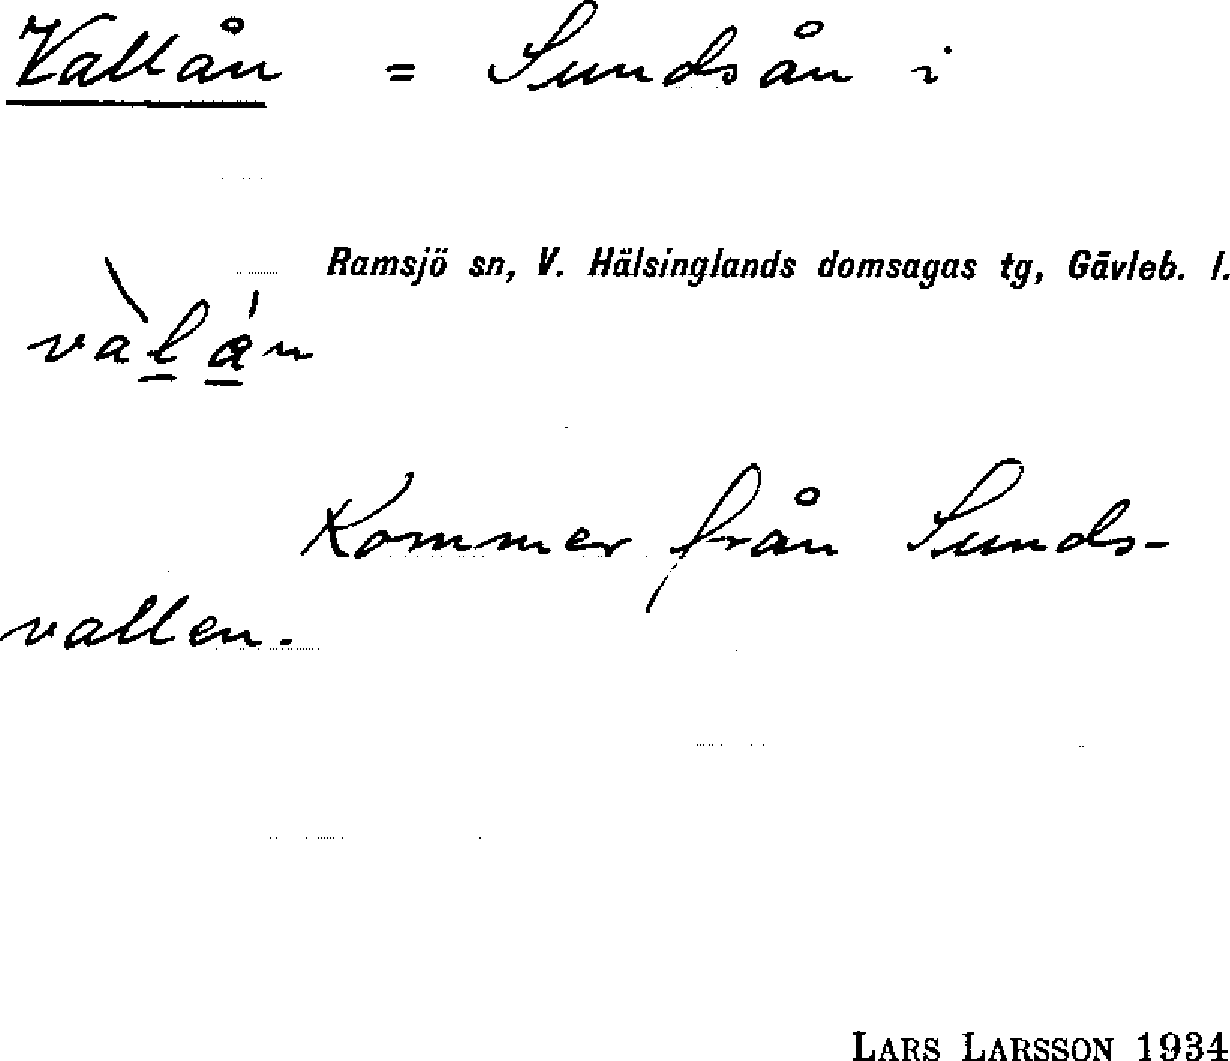 Vallån = Sundsån i
Ramsjö sn, V. Hälsinglands domsagas tg, Gävleb. l.
Kommer från Sunds-
vallen.
LARS LARSSON 1934